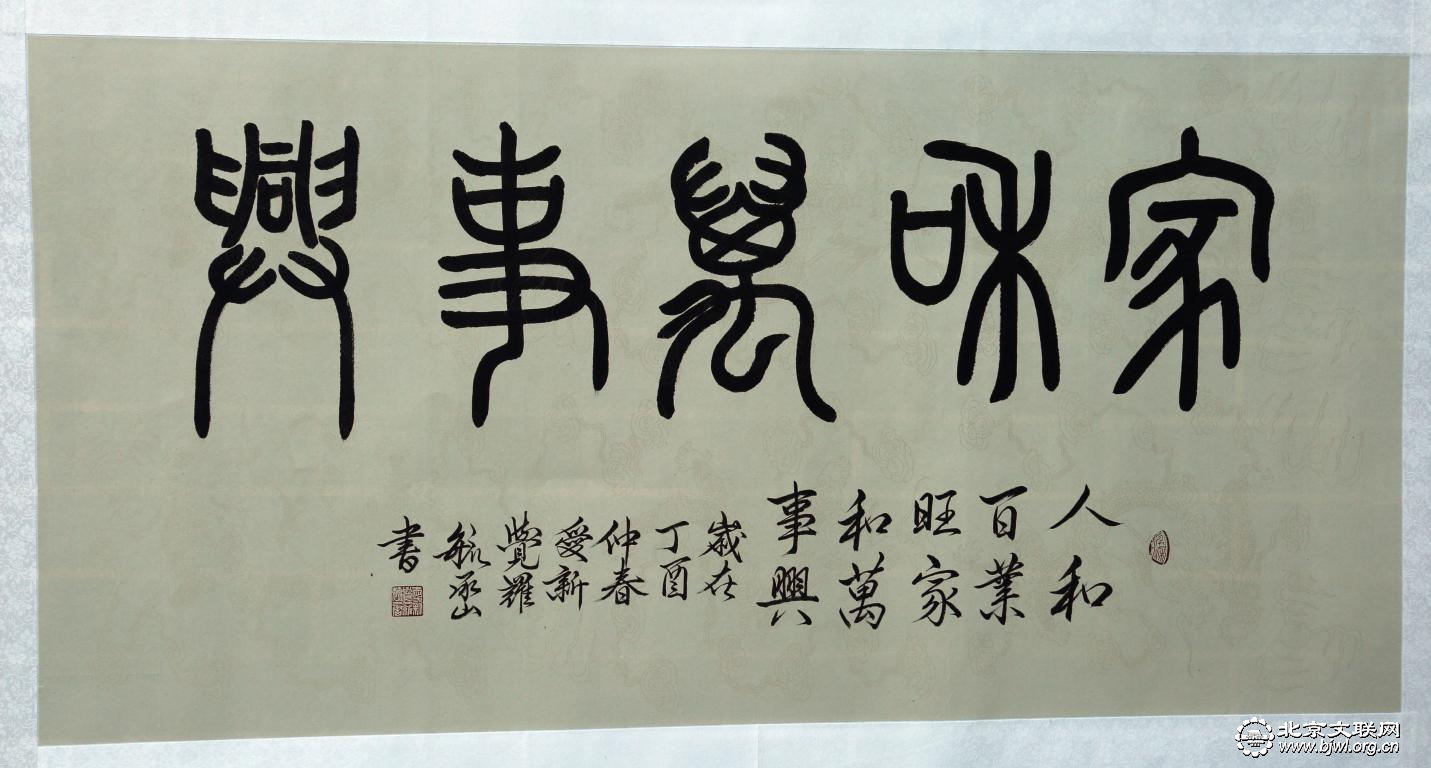 家和萬事興
人和
百業
旺家
和萬
事興
歲在
丁酉
仲春
愛新
覺羅
毓
書
北京文联网
www.bjwl.org.cn